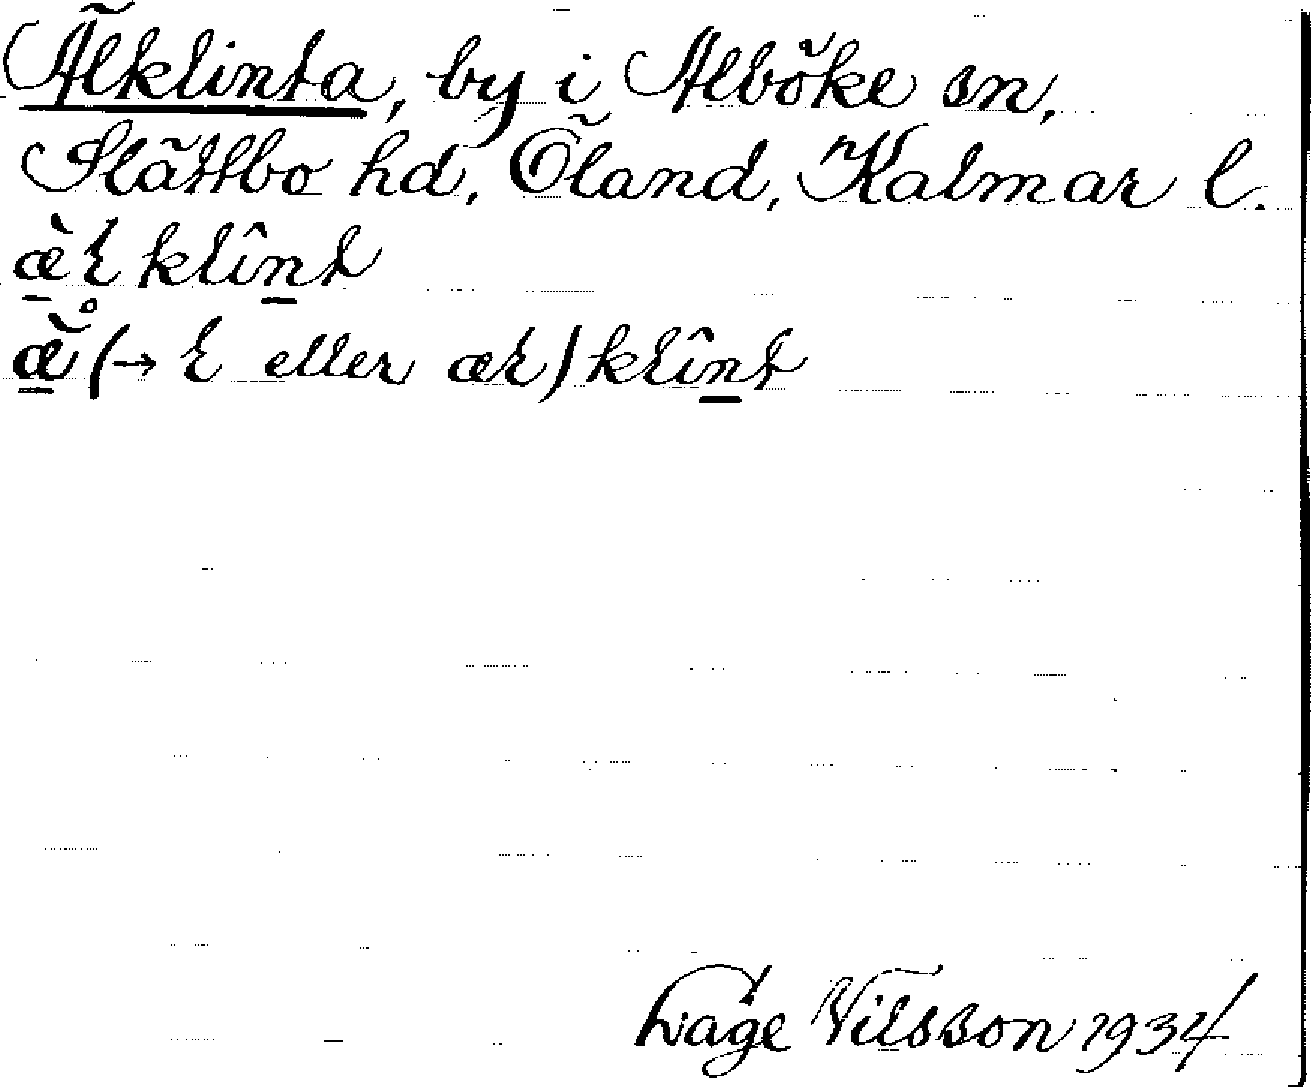 Älklinta, by i Alböke sn,
Slättbo hd, Öland, Kalmar l.
æ̀ł klînt
æ̀̊ (→ ł eller æł) klînt
Låge Nilsson 1934